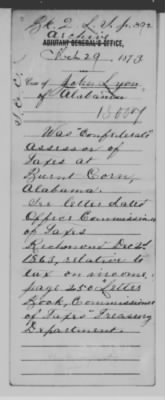 Archive
ADJUTANT GENERAL'S OFFICE,
29 1873
Case of John Lyon
of Alabama
Was Confederate
assessor of
Taxes at
Burnt Corn,
Alabama.
See letter dated
Office Commissioner
of Taxes
Richmond Dec
1863, relative to
tax on income,
page 250 "Letter
Book, Commissioner
of Taxes" Treasury
Department.